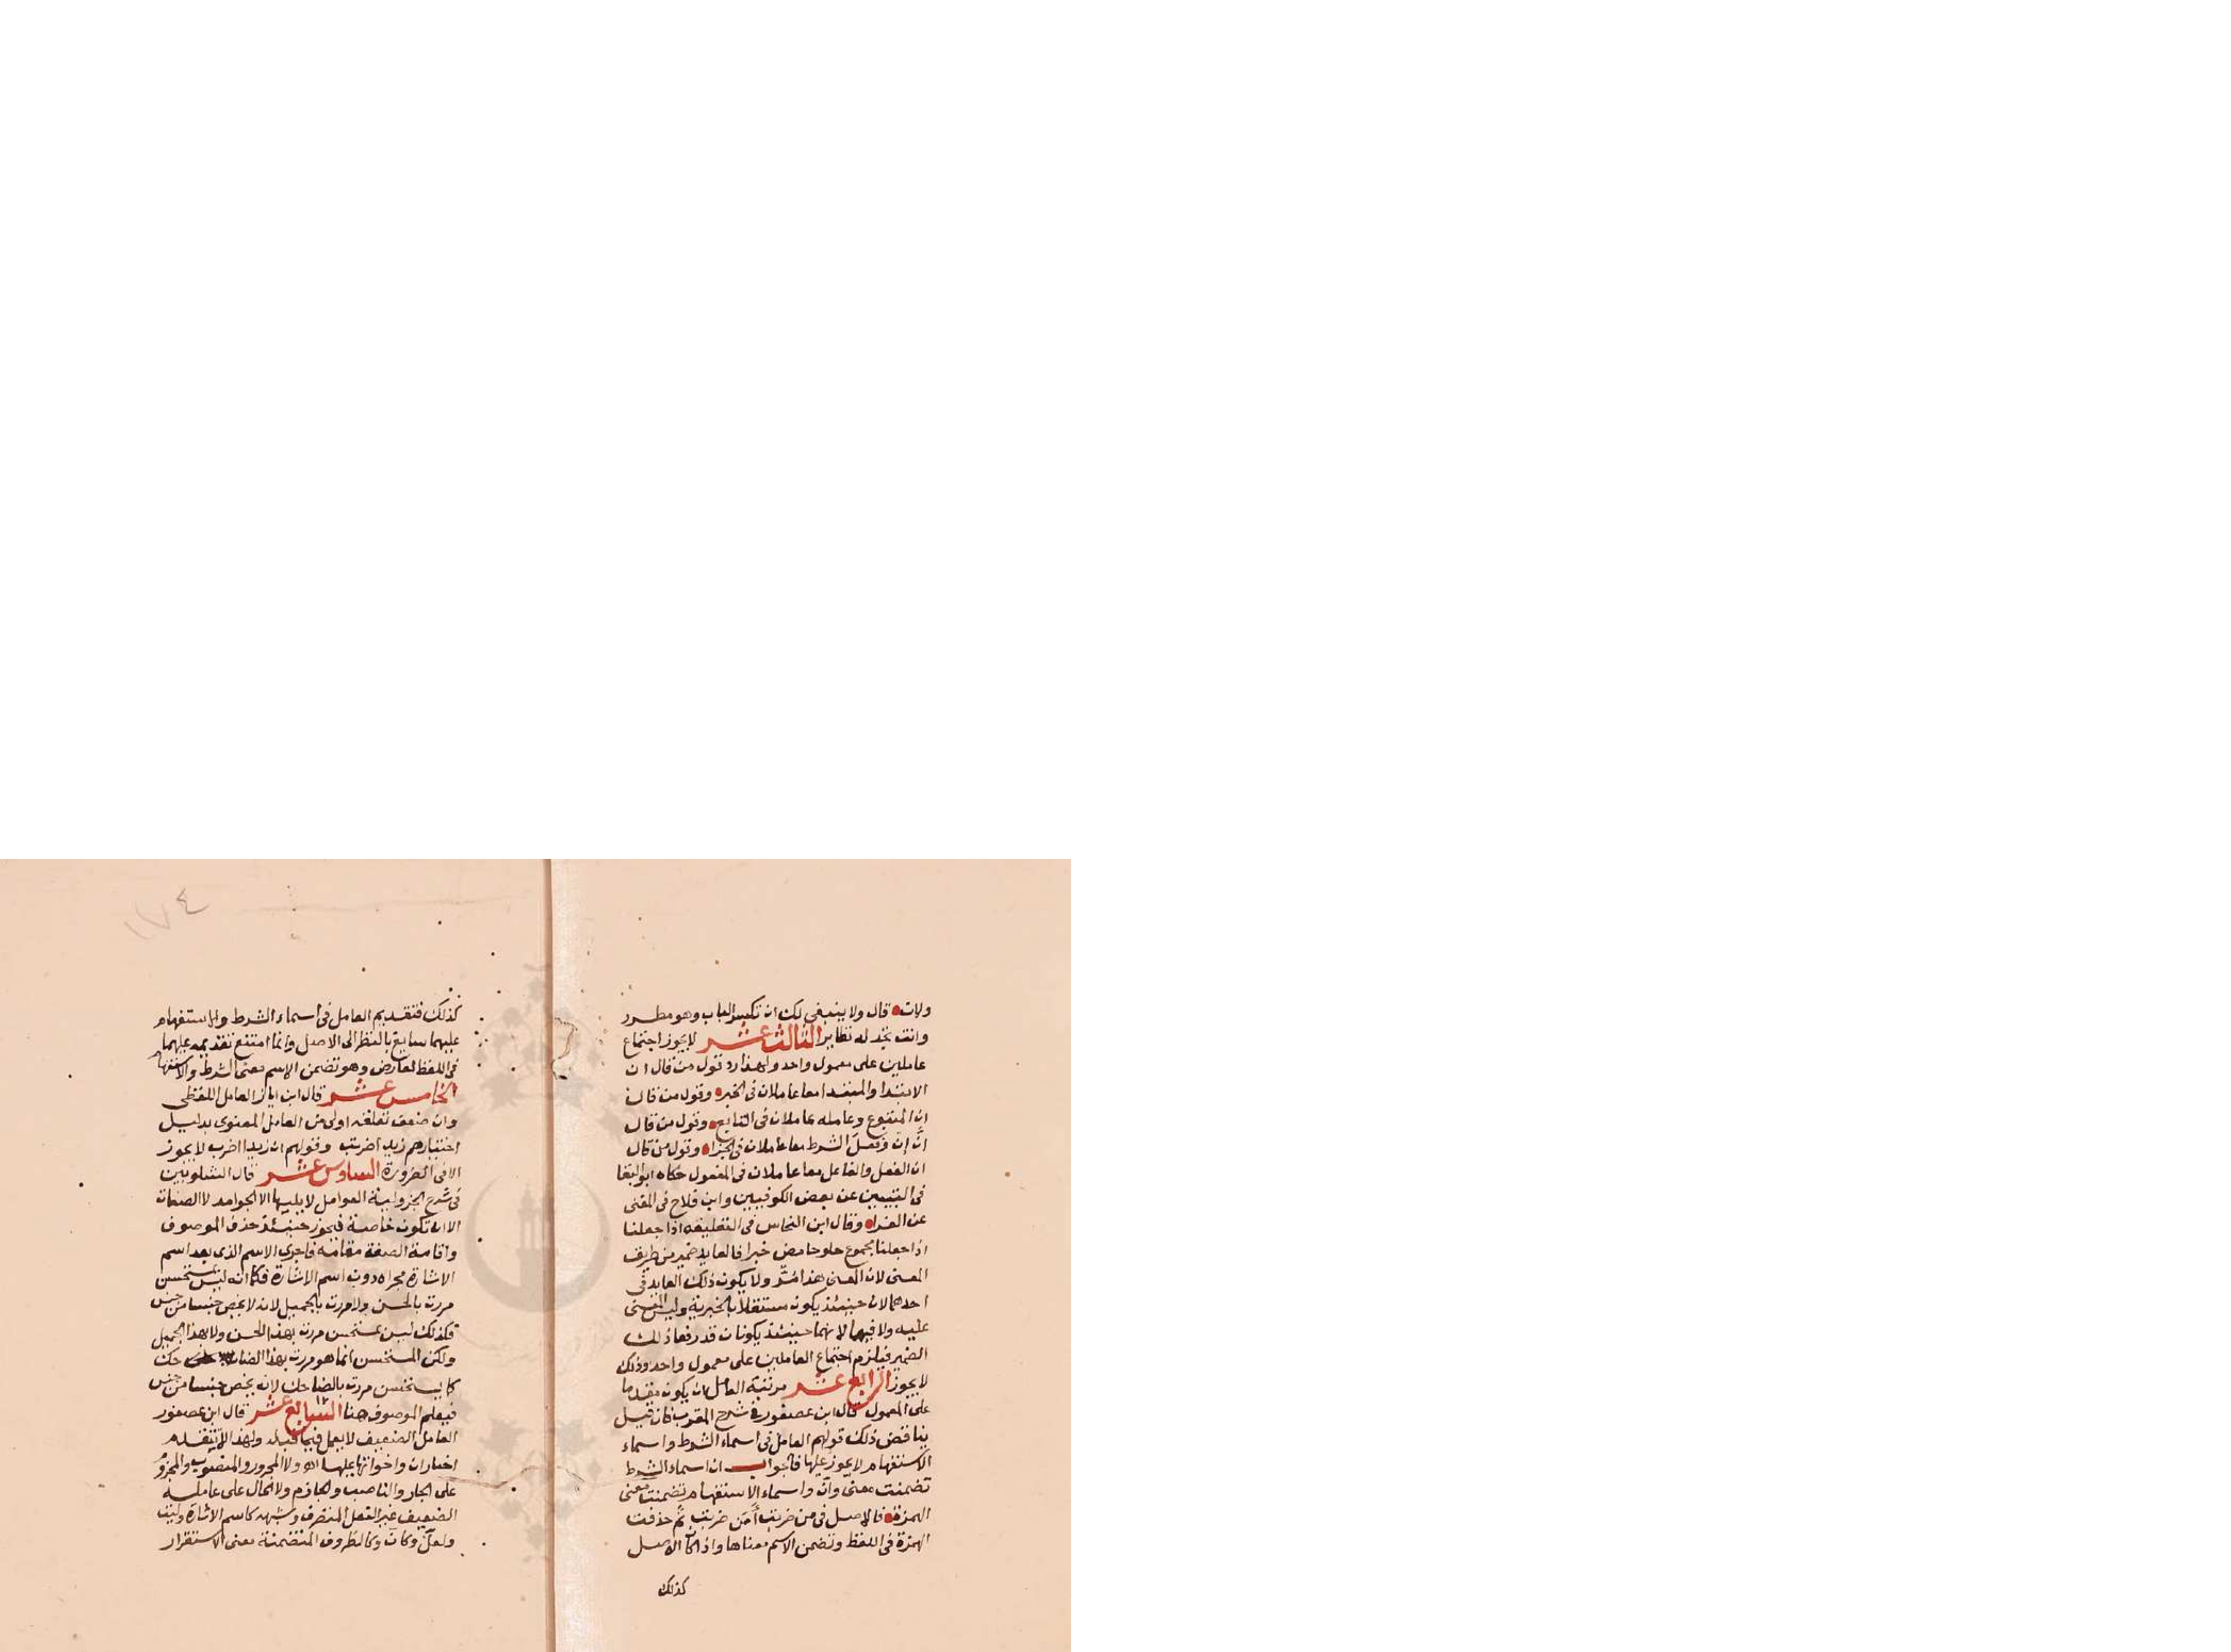 ولات قال ولا ينبغي لك ان تكسر الباب وهو مطرد
وانت تجد له نظايرا الثالث عشر لا يجوز اجتماع
عاملين على معمول واحد ولهذا رد قول من قال ان
الابتدا والمبتدا معا عاملان في الخبر وقول من قال
ان المتبوع وعامله عاملان في التابع وقول من قال
انَّ إن وفعلَ الشرط معا عاملان في الجزاء وقول من قال
ان الفعل والفاعل معا عاملان في المفعول حكاه ابو البقا
في التبيين عن بعض الكوفيين وابن فلاح في المغني
عن الفراء وقال ابن النحاس في التعليقه اذا جعلنا
اذا جعلنا مجموع حلو حامض خبرا فالعايد ضمير من طريق
المعنى لان المعنى هذا مُزّ ولا يكون ذلك العايد في
احدهما لانه حينئذ يكون مستقلا بالخبرية وليس المعنى
عليه ولا فيهما لانهما حينئذ يكونان قد رفعا ذلك
الضمير فيلزم اجتماع العاملين على معمول واحد وذلك
لا يجوز الرابع عشر مرتبة العامل ان يكون مقدما
على المعمول قال ابن عصفور في شرح المقرب فان قيل
يناقض ذلك قولهم العامل في اسماء الشرط واسماء
الاستفهام لا يجوز عليها فالجواب ان اسماء الشرط
تضمنت معنى وان واسماء الاستفهام تضمنت معنى
الهمزة فالاصل في من ضربت أَمَن ضربت ثم حذفت
الهمزة في اللفظ وتضمن الاسم معناها واذا كان الاصل
كذلك
١٧٤
كذلك فتقديم العامل في اسماء الشرط والاستفهام
عليهما سايغ بالنظر الى الاصل وانما امتنع تقديمه عليهما
في اللفظ لعارض وهو تضمن الاسم معنى الشرط والاستفهام
الخامس عشر قال ابن اياز العامل اللفظي
وان ضعف تعلقه اولى من العامل المعنوي بدليل
اختيارهم زيدا ضربت وقولهم ان زيدا اضرب لا يجوز
الا في الضرورة السادس عشر قال الشلوبين
في شرح الجزولية العوامل لا يليها الا الجوامد لا الصفات
الا ان تكون خاصة فيجوز حينئذ حذف الموصوف
واقامة الصفة مقامه فاجري الاسم الذي بعد اسم
الاشارة مجراه دون اسم الاشارة فكما انه ليس بمستحسن
مررت بالحسن ولا مررت بالجميل لانه لا يخص جنسا من جنس
فكذلك ليس بمستحسن مررت بهذا الحسن ولا بهذا الجميل
ولكن المستحسن انما هو مررت بهذا الضاحك
كما يستحسن مررت بالضاحك لانه يخص جنسا من جنس
فيعلم الموصوف هنا السابع عشر قال ابن عصفور
العامل الضعيف لا يعمل فيما قبله ولهذا لا يتقدم
اخبار ان واخواتها عليها ولا المجرور والمنصوب والمجزوم
على الجار والناصب والجازم ولا الحال على عامله
الضعيف غير الفعل المتصرف وشبهه كاسم الاشارة وليت
ولعلّ وكانّ وكالظروف المتضمنة معنى الاستقرار